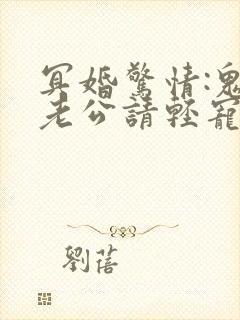 冥婚驚情:鬼
老公請輕寵
劉蓓